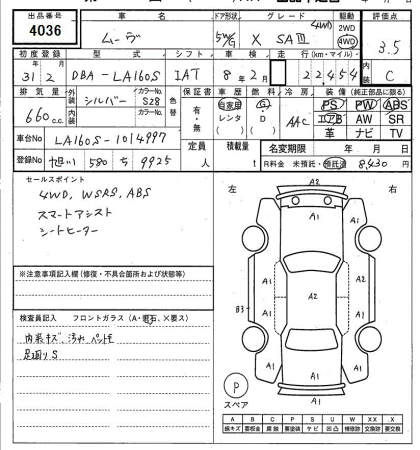 出品番号 車名 ドア形状 グレード 駆動 評価点
4036 ムーヴ 5 W/G X SAⅢ 4WD 2WD 4WD 3.5
初度登録 型式 シフト 車検 走行(km・マイル) 内装
31年2月 DBA-LA160S IAT 8年2月 22454 C
排気量 外装 シルバー カラーNo. S28 色替 保証書 車歴 燃料 冷房 装備(純正部品に限る)
660cc 内装 カラーNo. 有・無 自家用 レンタ G・D AAC PS PW ABS
エアB AW SR
革 ナビ TV
車台No LA160S-1014997 定員 人 積載量 t 名変期限 年 月 日
登録No 旭川 580 ち 9925 R料金 未預託・預託済 8,430円
セールスポイント
4WD, WSRS, ABS
スマートアシスト
シートヒーター
左 右
A2
A1
A1 A1
A1 A2 A1
B3
A1 A1
A1
A1
※注意事項記入欄(修復・不具合箇所および状態等)
検査員記入 フロントガラス(A・飛石、×要ス)
内装キズ、汚れ ペットモ
足廻りS
P
スペア
A B C P S U W XX X
線キズ 要板金 腐蝕 要塗装 サビ 凹凸 補修跡 交換済 要交換